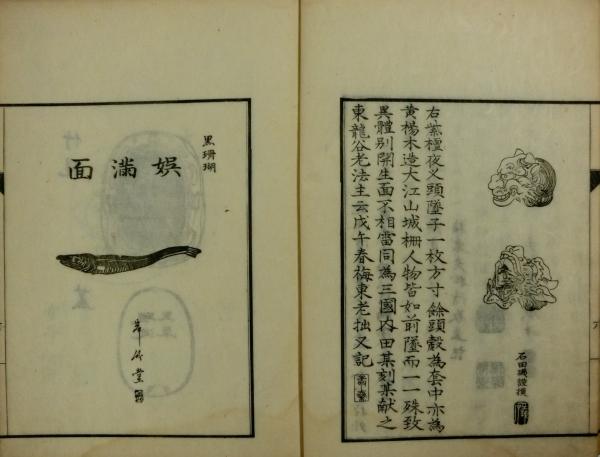 石田
右紫檀夜叉頭墜子一枚方寸餘頭殼為套中亦為
黄楊木造大江山城柵人物皆如前墜而一一殊致
異體別開生面不相雷同為三國內田某刻某獻之
東龍谷老法主云戊午春梅東老拙又記
黒珊瑚
娯満面